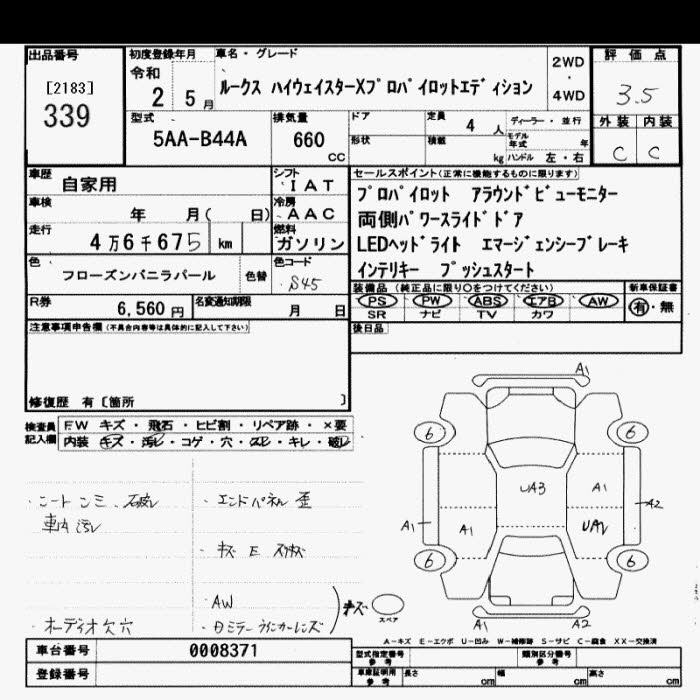 出品番号
[2183]
339
初度登録年月
令和
2 5月
車名・グレード
ルークス ハイウェイスターXプロパイロットエディション
2WD
・
4WD
評価点
3.5
外装 内装
C C
型式
5AA-B44A
排気量
660
CC
ドア
形状
定員 4 人
積載 kg
ディーラー・並行
モデル年式 年
ハンドル 左・右
車歴
自家用
シフト
IAT
車検
年 月( 日)
冷房
AAC
走行
4万6千675 km
燃料
ガソリン
色
フローズンバニラパール
色替
色コード
S45
R券
6,560円
名変通知期限
月 日
セールスポイント(正常に機能するものに限ります)
プロパイロット アラウンドビューモニター
両側パワースライドドア
LEDヘッドライト エマージェンシーブレーキ
インテリキー プッシュスタート
装備品 (純正品に限り○をつけてください)
PS PW ABS エアB AW
SR ナビ TV カワ
新車保証書
有・無
後日品
注意事項申告欄(不具合内容等は具体的に記入して下さい)
修復歴 有〔箇所 〕
検査員記入欄
FW キズ・飛石・ヒビ割・リペア跡・×要
内装 キズ・汚レ・コゲ・穴・スレ・キレ・破レ
車内汚レ
・オーディオ欠穴
・エンドパネル 歪
・キズ E
・AW
・Dミラーウインカーレンズ
キズ
スペア
A1
6 6
UA3 A1
A1 A1 A2
6 6
A1 A2
A-キズ E-エクボ U-凹み W-補修跡 S-サビ C-腐食 XX-交換済
車台番号
0008371
登録番号
型式指定番号
参考
類別区分番号
参考
車庫証明用
参考
長さ cm
幅 cm
高さ cm